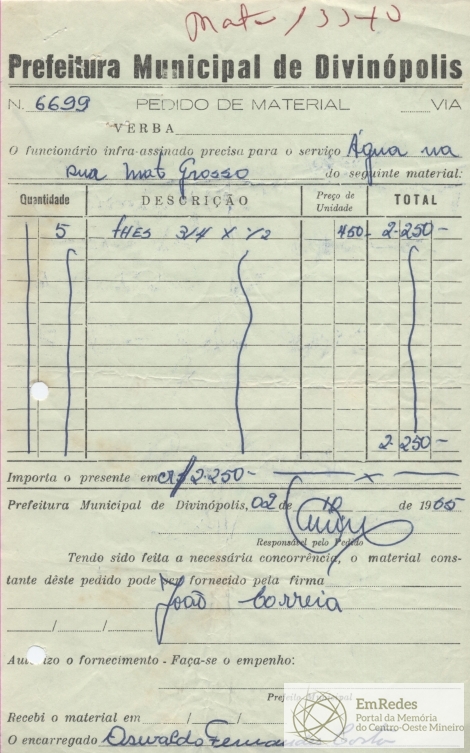 Mat 13370
Prefeitura Municipal de Divinópolis
N. 6699 PEDIDO DE MATERIAL VIA
VERBA
O funcionário infra-assinado precisa para o serviço Água na
rua Mat Grosso do seguinte material:
Quantidade DESCRIÇÃO Preço de Unidade TOTAL
5 tHES 3/4 x 1/2 450- 2.250-
2.250-
Importa o presente em cr$ 2.250- x
Prefeitura Municipal de Divinópolis, 02 de 10 de 1965
Responsável pelo Pedido
Tendo sido feita a necessária concorrência, o material cons-
tante dêste pedido pode ser fornecido pela firma
João Correia
/ /
Autorizo o fornecimento - Faça-se o empenho:
Prefeito Municipal
Recebi o material em / /
O encarregado Oswaldo Fernandes
EmRedes
Portal da Memória
do Centro-Oeste Mineiro